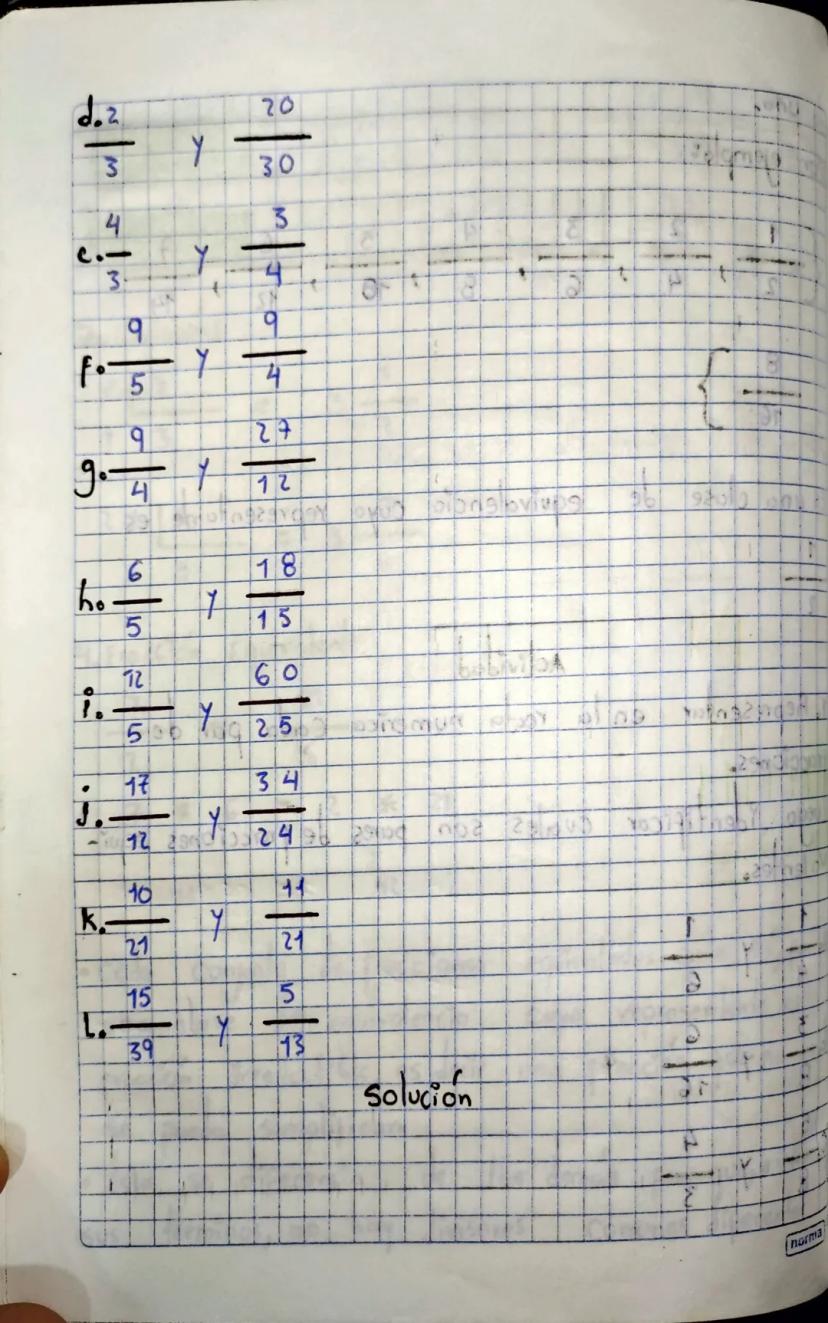 d. 2/3 y 20/30
e. 4/3 y 3/4
f. 9/5 y 9/4
g. 9/4 y 27/12
h. 6/5 y 18/15
i. 12/5 y 60/25
j. 17/12 y 34/24
k. 10/21 y 11/21
l. 15/39 y 5/13
Solución
norma